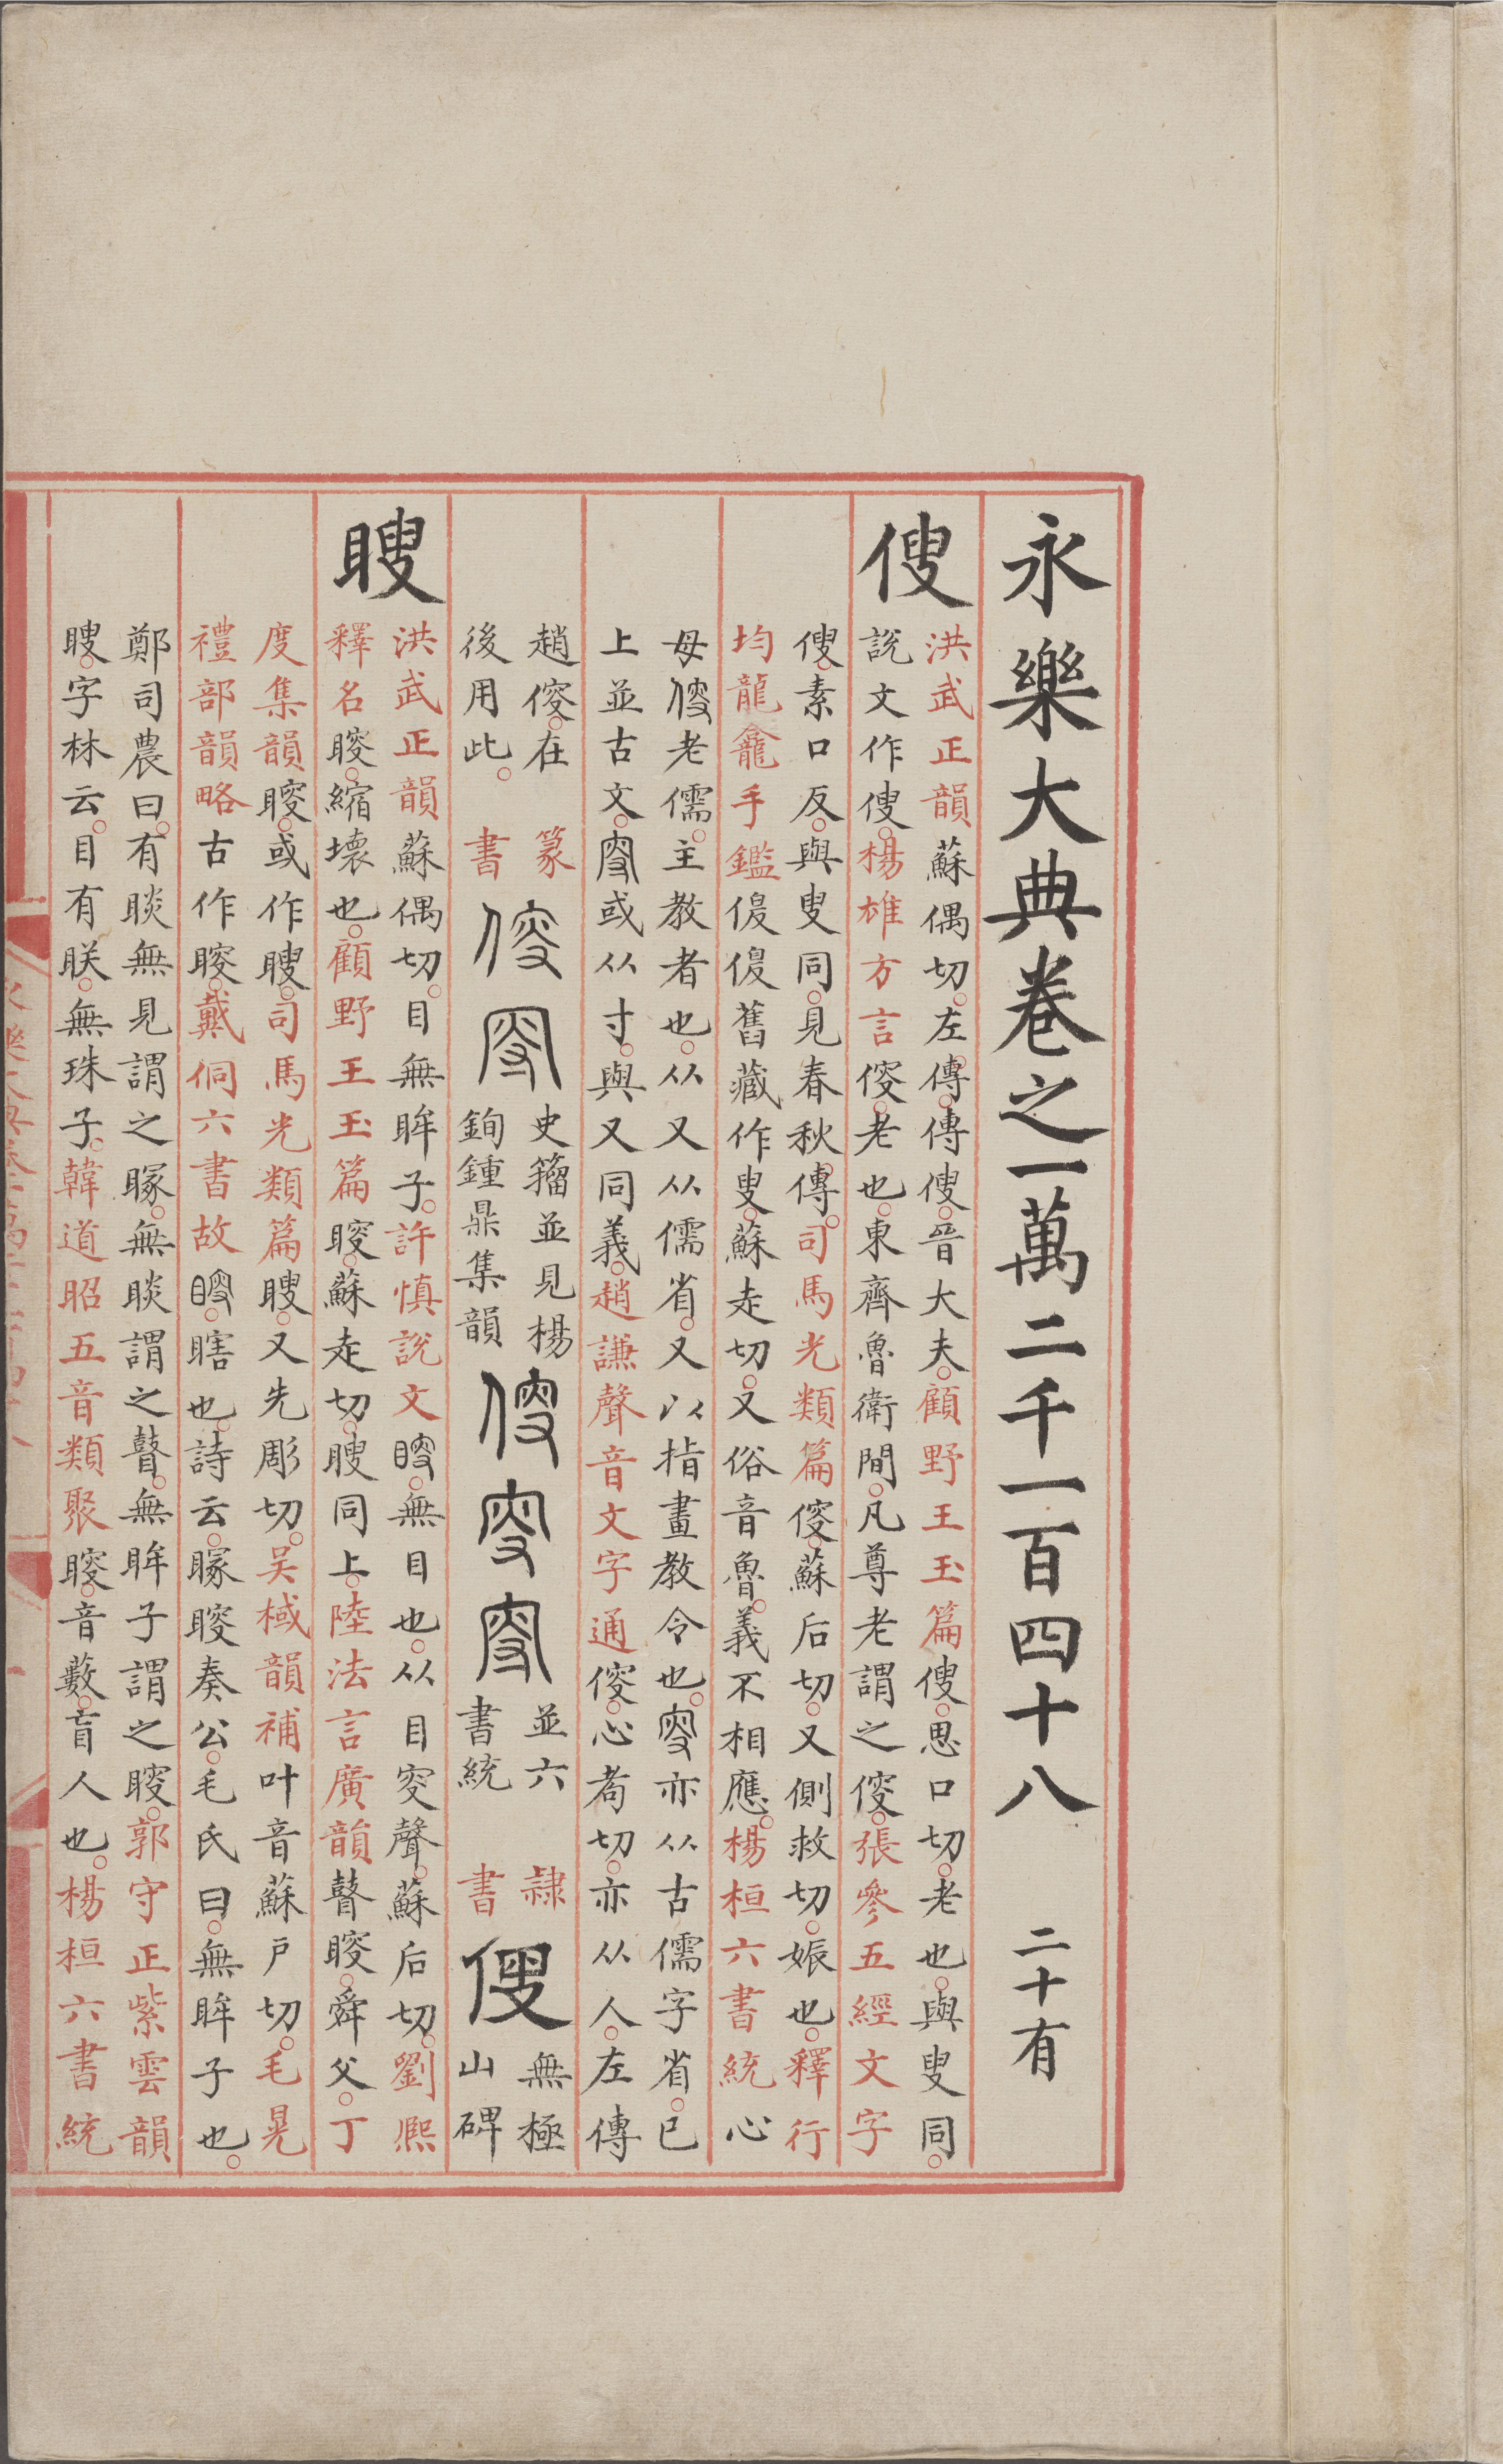 永樂大典卷之一萬二千一百四十八 二十有
傁
洪武正韻蘇偶切左傳傳傁晉大夫顧野王玉篇傁思口切老也與叟同
說文作傁楊雄方言傁老也東齊魯衛間凡尊老謂之傁張參五經文字
傁素口反與叟同見春秋傳司馬光類篇傁蘇后切又側救切娠也釋行
均龍龕手鑑傁傁舊藏作叟蘇走切又俗音魯義不相應楊桓六書統心
母傁老儒主教者也从又从儒省又以指畫教令也叜亦从古儒字省已
上並古文叜或从寸與又同義趙謙聲音文字通傁心茍切亦从人左傳
趙傁在
後用此
篆
書
傁叜
史籀並見楊
鉤鍾鼎集韻
傁叜叜
並六
書統
隸
書
傁
無極
山碑
瞍
洪武正韻蘇偶切目無眸子許慎說文瞍無目也从目叜聲蘇后切劉熙
釋名瞍縮壞也顧野王玉篇瞍蘇走切瞍同上陸法言廣韻瞽瞍舜父丁
度集韻瞍或作瞍司馬光類篇瞍又先彫切吳棫韻補叶音蘇戶切毛晃
禮部韻略古作瞍戴侗六書故瞍瞎也詩云矇瞍奏公毛氏曰無眸子也
鄭司農曰有睒無見謂之矇無睒謂之瞽無眸子謂之瞍郭守正紫雲韻
瞍字林云目有眹無珠子韓道昭五音類聚瞍音藪盲人也楊桓六書統